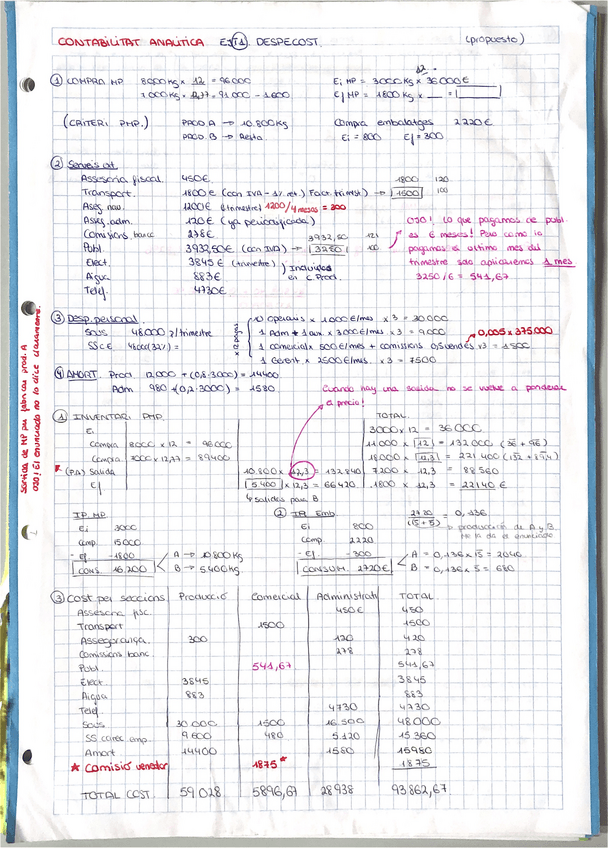 CONTABILITAT ANALÍTICA EX T1 DESPECOST. (propuesto)
① COMPRA MP 8000 Kg x 12 = 96000
Ei MP = 3000 Kg x 12 36000 €
7000 Kg x 12,77 = 91000 - 1600
Ef MP = 1800 Kg x __ =
(CRITERI PMP.) PROD. A → 10.800 Kg
Compra embalatges 2220 €
PROD. B → Resta
Ei = 800 Ef = 300
② Serveis ext.
Assessoria fiscal. 450 €
Transport. 1800 € (con IVA - 1% ret.) Factr. trimest) → 1500
1800 120
100
Aseg. nau. 1200 € (trimestre) 1200/4 mesos = 300
Aseg. adm. 120 € (ya periodificada)
Comissions banc 278 €
Publ. 3932,50 € (con IVA) → 3250
3932,50 121
100
Elect. 3845 € (trimestre)
Aigua 883 €
Incluidos en C. Prod.
Telef. 4730 €
OJO! Lo que pagamos de publ
es 6 meses! Pero como lo
pagamos el ultimo mes del
trimestre solo aplicaremos 1 mes
3250/6 = 541,67
③ Desp. personal
Sous 48.000 ?/trimestre
10 operaris x 1000 €/mes x 3 = 30 000
1 Adm + 1 aux x 3000 €/mes x 3 = 9000
1 comercial x 500 €/mes + comissions 0,5 vendes x 3 = 1500
0,005 x 375.000
1 Gerent x 2500 €/mes. x 3 = 7500
④ AMORT. Prod 12000 + (0,8·3000) = 14400
Adm 980 + (0,2·3000) = 1580
Cuando hay una salida no se vuelve a ponderar
el precio!
Sortida de MP per fabricar prod. A
OJO! El enunciado no lo dice claramente.
① INVENTARI PMP.
TOTAL
Ei
3000 x 12 = 36 000
Compra 8000 x 12 = 96000
11000 x 12 = 132 000 (36 + 96)
Compra 7000 x 12,77 = 89400
18000 x 12,3 = 221 400 (132 + 89,4)
* (PA) Salida 10.800 x 12,3 = 132 840
7200 x 12,3 = 88 560
Ef 5400 x 12,3 = 66420
1800 x 12,3 = 22140 €
↳ salides para B
IP. MP.
Ei 3000
Comp. 15000
- Ef - 1800
CONS. 16.200
A → 10.800 Kg
B → 5.400 Kg
② IP. Emb.
Ei 800
Comp. 2220
- Ef. - 300
CONSUM. 2720 €
2720 / (15 + 5) = 0,136
↳ producción de A y B.
Me la da el enunciado
A = 0,136 x 15 = 2040
B = 0,136 x 5 = 680
③ Cost per seccions Producció Comercial Administrati TOTAL
Assessoria fisc. 450 € 450
Transport 1500 1500
Assegurança. 300 120 420
Comissions banc. 278 278
Publ. 541,67 541,67
Elect. 3845 3845
Aigua 883 883
Telef. 4730 4730
Sous 30 000 1500 16.500 48000
SS càrrec emp. 9600 480 5120 15 360
Amort 14400 1580 15980
* Comisió venedor 1875 * 1875
TOTAL COST. 59028 5896,67 28938 93862,67